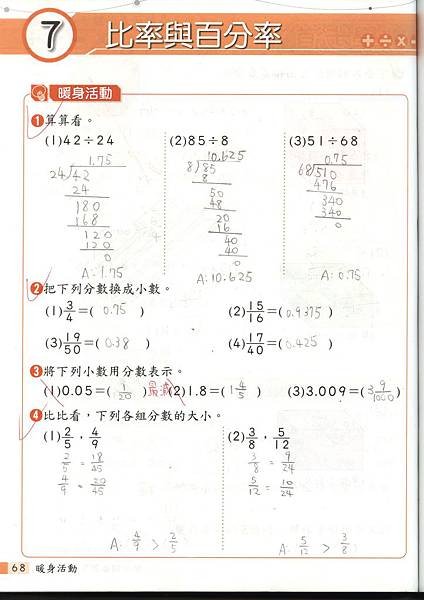 7 比率與百分率 + ÷ × -
暖身活動
1 算算看。
(1)42÷24 (2)85÷8 (3)51÷68
1.75 10.625 0.75
24 42 8 85 68 510
24 8 476
180 50 340
168 48 340
120 20 0
120 16
0 40
40
0
A:1.75 A:10.625 A:0.75
2 把下列分數換成小數。
(1)3/4=( 0.75 ) (2)15/16=( 0.9375 )
(3)19/50=( 0.38 ) (4)17/40=( 0.425 )
3 將下列小數用分數表示。
(1)0.05=( 1/20 ) (2)1.8=( 1 4/5 ) (3)3.009=( 3 9/1000 )
4 比比看，下列各組分數的大小。
(1)2/5，4/9 (2)3/8，5/12
2/5 = 18/45 3/8 = 9/24
4/9 = 20/45 5/12 = 10/24
A: 4/9 > 2/5 A: 5/12 > 3/8
68 暖身活動